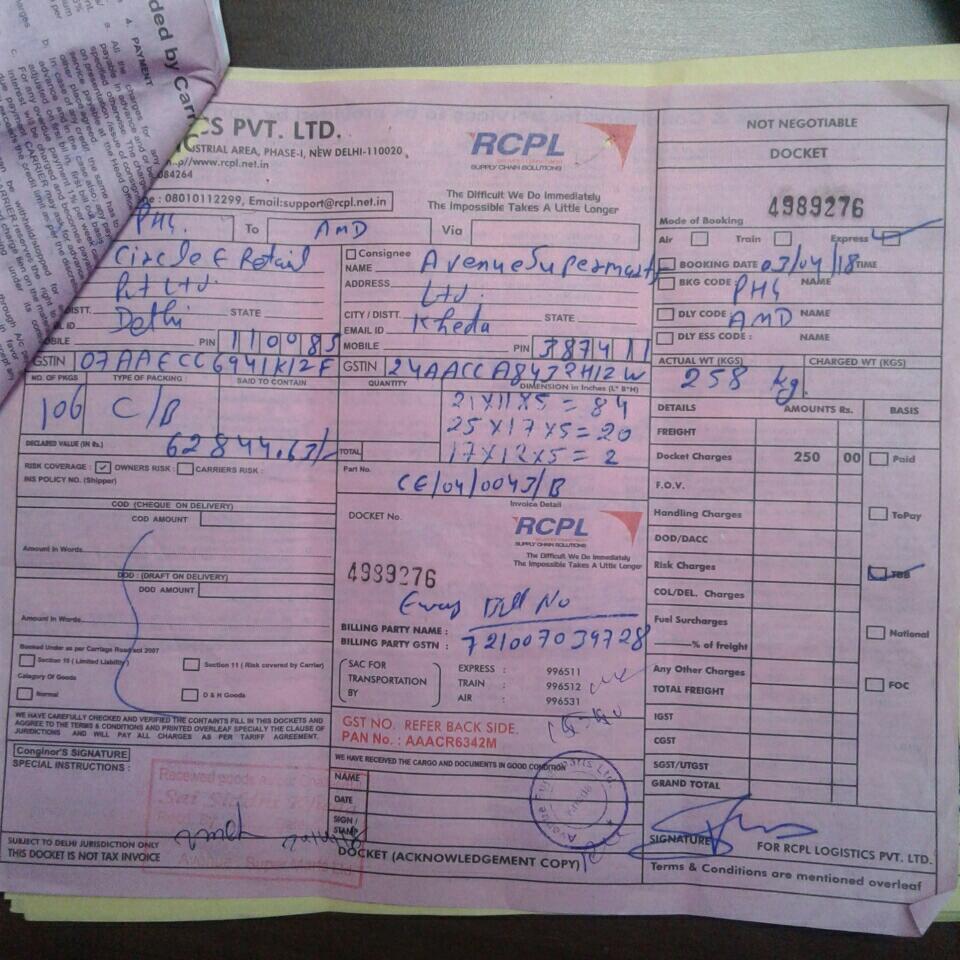 ded by Carr
4. PAYMENT
CS PVT. LTD.
USTRIAL AREA, PHASE-I, NEW DELHI-110020
http//www.rcpl.net.in
084264
: 08010112299, Email:support@rcpl.net.in
RCPL
SUPPLY CHAIN SOLUTIONS
The Difficult We Do Immediately
The Impossible Takes A Little Longer
NOT NEGOTIABLE
DOCKET
4989276
Mode of Booking
Air Train Express
PHG. To AMD Via
Circle E Retail
Pvt Ltd.
DISTT. Delhi STATE
MOBILE PIN 110085
GSTIN 07AAECC6941K1ZF
Consignee
NAME Avenue Supermarts
ADDRESS Ltd.
CITY / DISTT. Kheda STATE
EMAIL ID
MOBILE PIN 387411
GSTIN 24AACCA8432H1ZW
BOOKING DATE 03/04/18 TIME
BKG CODE PHG NAME
DLY CODE AMD NAME
DLY ESS CODE : NAME
ACTUAL WT (KGS) CHARGED WT (KGS)
258 kg.
NO. OF PKGS TYPE OF PACKING SAID TO CONTAIN
106 C/B
QUANTITY DIMENSION in Inches (L* B*H)
21X11X5 = 84
25 X17 X5 = 20
17X12X5 = 2
TOTAL
DECLARED VALUE (IN Rs.) 62844.63/-
RISK COVERAGE : OWNERS RISK : CARRIERS RISK :
INS POLICY NO. (Shipper)
COD (CHEQUE ON DELIVERY)
COD AMOUNT
Amount in Words
DOD : (DRAFT ON DELIVERY)
DOD AMOUNT
Amount in Words
Booked Under as per Carriage Road act 2007
Section 10 ( Limited Liability) Section 11 ( Risk covered by Carrier)
Category Of Goods
Normal D & H Goods
WE HAVE CAREFULLY CHECKED AND VERIFIED THE CONTAINTS FILL IN THIS DOCKETS AND
AGGREE TO THE TERMS & CONDITIONS AND PRINTED OVERLEAF SPECIALLY THE CLAUSE OF
JURISDICTIONS AND WILL PAY ALL CHARGES AS PER TARIFF AGREEMENT.
Conginor'S SIGNATURE
SPECIAL INSTRUCTIONS :
SUBJECT TO DELHI JURISDICTION ONLY
THIS DOCKET IS NOT TAX INVOICE
Part No.
CE/04/0043/B
Invoice Detail
DOCKET No.
RCPL
SUPPLY CHAIN SOLUTIONS
The Difficult We Do Immediately
The Impossible Takes A Little Longer
4989276
Eway Bill No
BILLING PARTY NAME :
BILLING PARTY GSTN : 721007039728
SAC FOR TRANSPORTATION BY
EXPRESS : 996511
TRAIN : 996512
AIR : 996531
GST NO. REFER BACK SIDE.
PAN No. : AAACR6342M
WE HAVE RECEIVED THE CARGO AND DOCUMENTS IN GOOD CONDITION
NAME
DATE
SIGN /
STAMP
DOCKET (ACKNOWLEDGEMENT COPY)
DETAILS AMOUNTS Rs. BASIS
FREIGHT
Docket Charges 250 00 Paid
F.O.V.
Handling Charges ToPay
DOD/DACC
Risk Charges TBB
COL/DEL. Charges
Fuel Surcharges National
% of freight
Any Other Charges FOC
TOTAL FREIGHT
IGST
CGST
SGST/UTGST
GRAND TOTAL
SIGNATURE FOR RCPL LOGISTICS PVT. LTD.
Terms & Conditions are mentioned overleaf